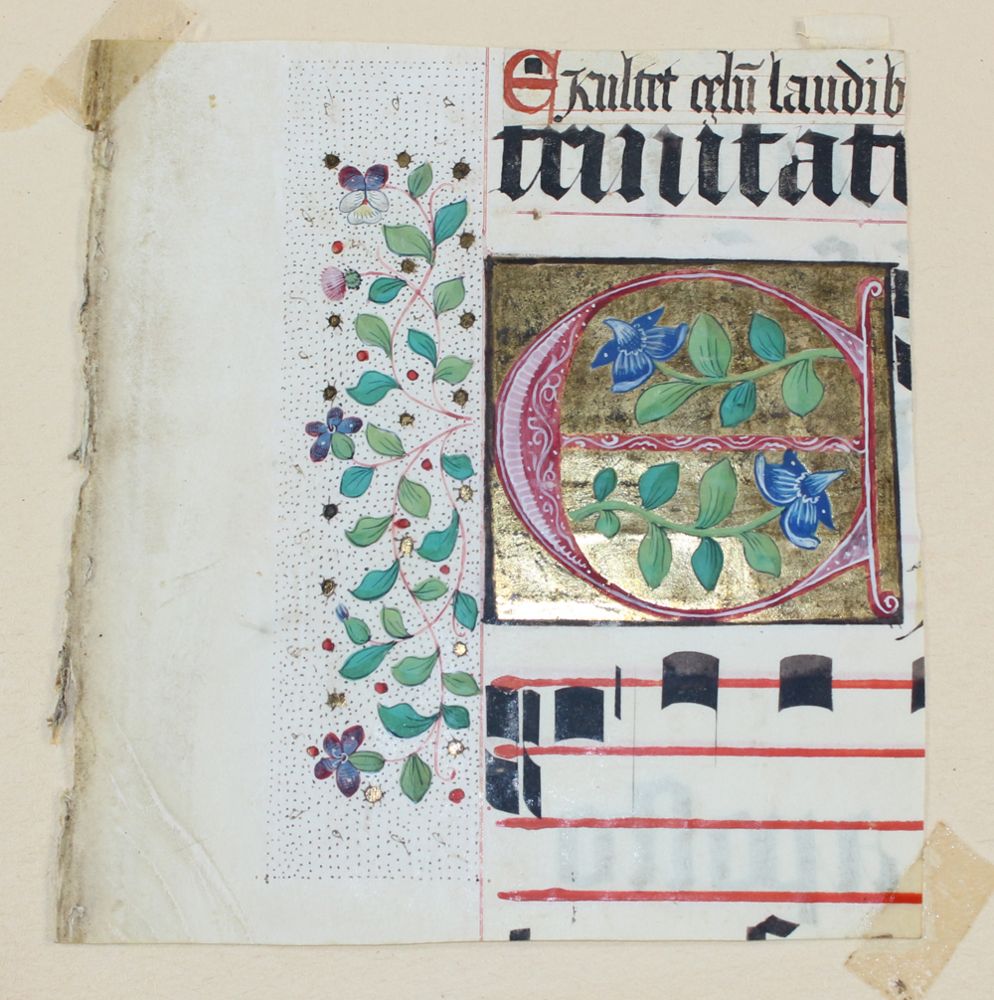 Exultet cęlū laudib
trinitati
E